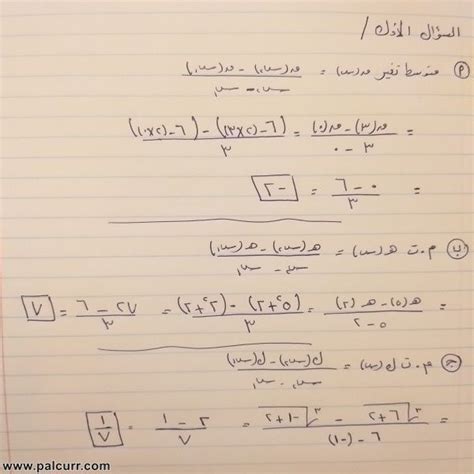 السؤال الأول /
أ) متوسط تغير ق(س) = ق(س٢) - ق(س١)
س٢ - س١
= ق(٣) - ق(٠) = (٦ - (٢×٣)) - (٦ - (٢×٠))
٣ - ٠ ٣
= ٠ - ٦ = -٢
٣
ب) م.ت هـ(س) = هـ(س٢) - هـ(س١)
س٢ - س١
= هـ(٥) - هـ(٢) = (٥²+٢) - (٢²+٢) = ٢٧ - ٦ = ٧
٥ - ٢ ٣ ٣
ج) م.ت ل(س) = ل(س٢) - ل(س١)
س٢ - س١
= ∛(٦+٢) - ∛(-١+٢) = ٢ - ١ = ١/٧
٦ - (-١) ٧
www.palcurr.com